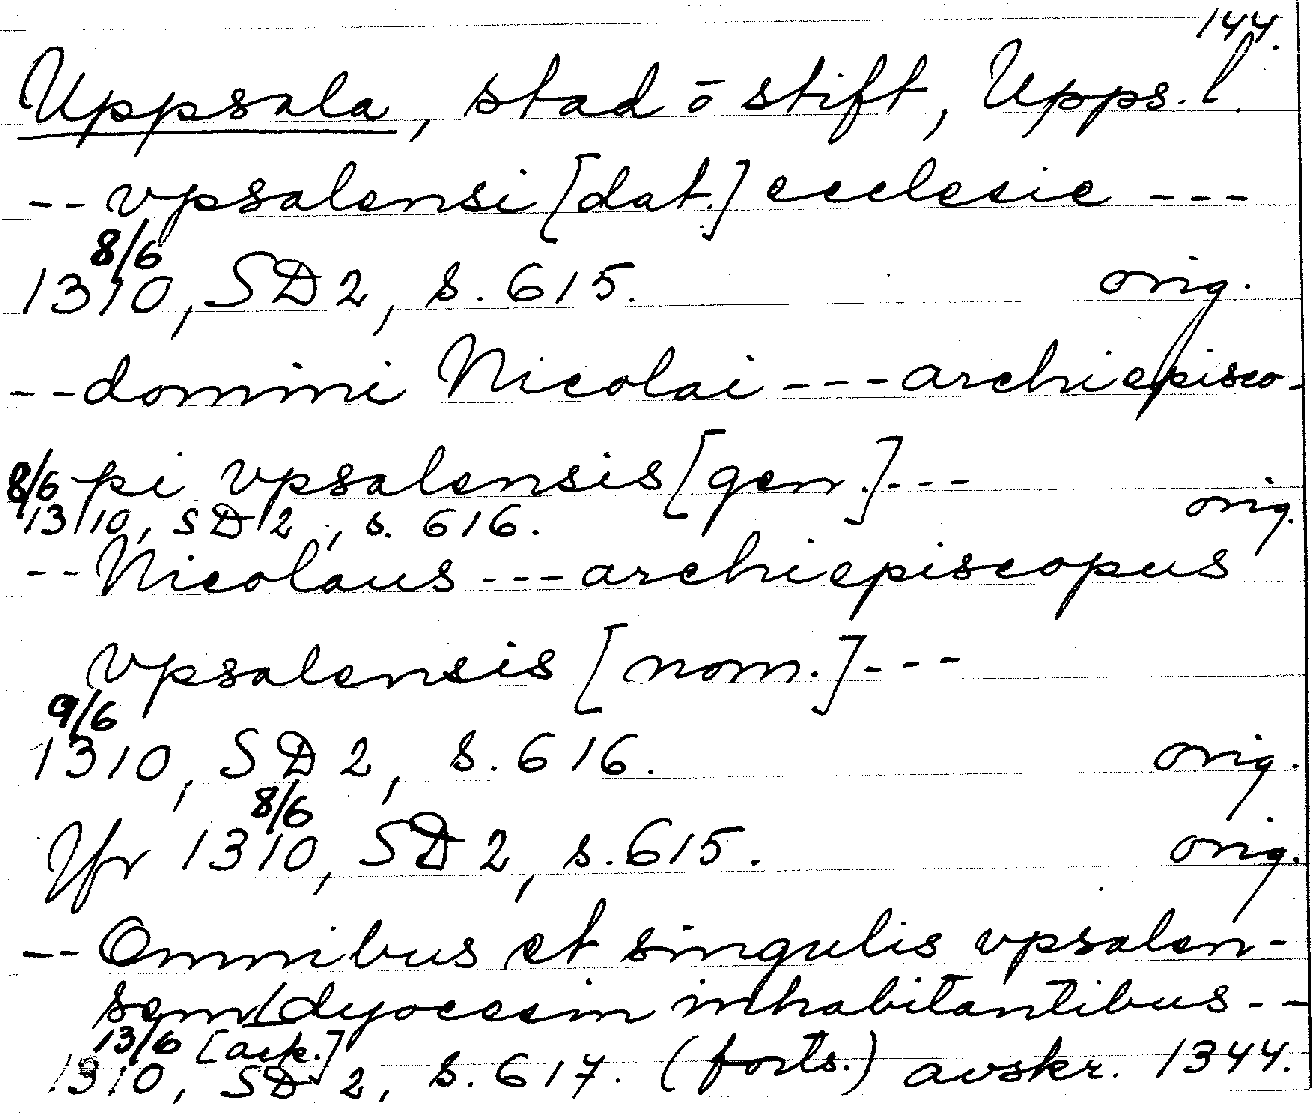 144.
Uppsala, stad ō stift, Upps. l.
-- vpsalensi [dat.] ecclesie ---
8/6
1310, SD 2, s. 615. orig.
-- domini Nicolai --- archiepisco-
pi vpsalensis [gen.] ---
8/6
1310, SD 2, s. 616. orig.
-- Nicolaus --- archiepiscopus
vpsalensis [nom.] ---
9/6
1310, SD 2, s. 616. orig.
8/6
Jfr 1310, SD 2, s. 615. orig.
-- Omnibus et singulis vpsalen-
sem dyocesim inhabitantibus --
13/6 [ack.]
1310, SD 2, s. 617. (forts.) avskr. 1344.